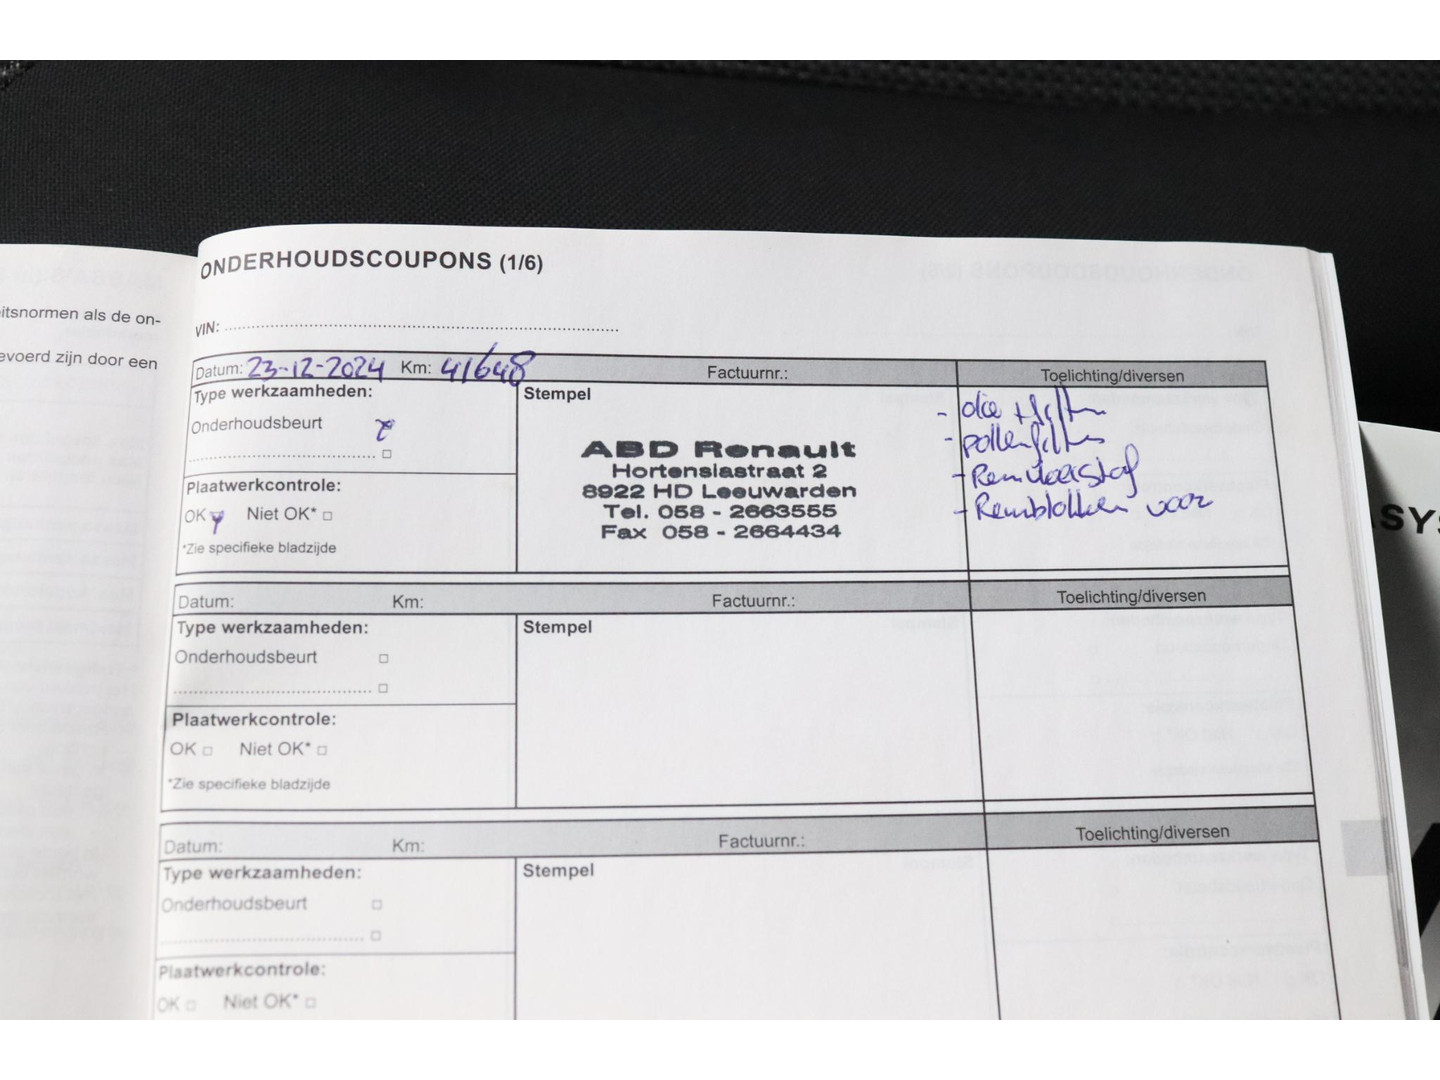 itsnormen als de on-
evoerd zijn door een
ONDERHOUDSCOUPONS (1/6)
VIN:
Datum: 23-12-2024 Km: 41648 Factuurnr.: Toelichting/diversen
Type werkzaamheden:
Onderhoudsbeurt
Plaatwerkcontrole:
OK Niet OK*
*Zie specifieke bladzijde
Stempel
ABD Renault
Hortensiastraat 2
8922 HD Leeuwarden
Tel. 058 - 2663555
Fax 058 - 2664434
- olie + filter
- pollenfilter
- Remvloeistof
- Remblokken voor
Datum: Km: Factuurnr.: Toelichting/diversen
Type werkzaamheden:
Onderhoudsbeurt
Plaatwerkcontrole:
OK Niet OK*
*Zie specifieke bladzijde
Stempel
Datum: Km: Factuurnr.: Toelichting/diversen
Type werkzaamheden:
Onderhoudsbeurt
Plaatwerkcontrole:
OK Niet OK*
Stempel